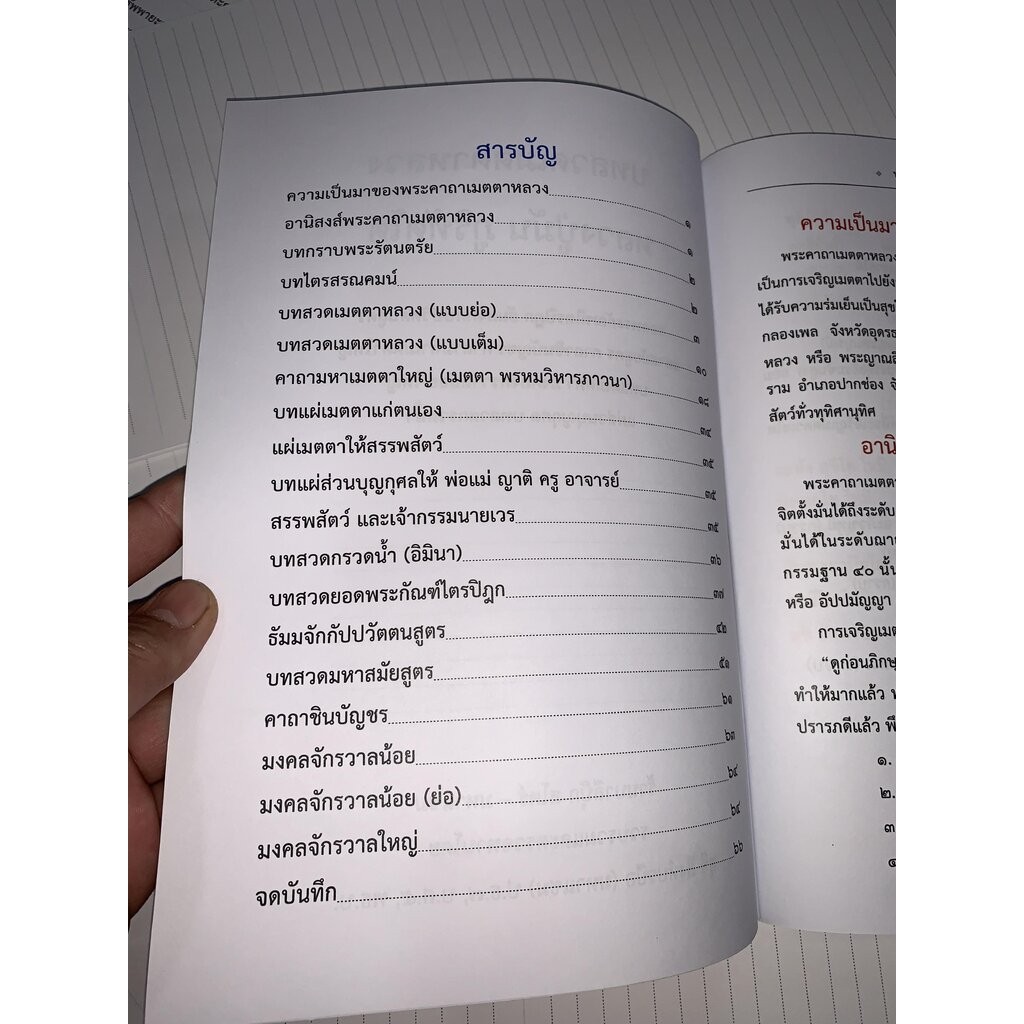 สารบัญ
ความเป็นมาของพระคาถาเมตตาหลวง ๑
อานิสงส์พระคาถาเมตตาหลวง ๑
บทกราบพระรัตนตรัย ๒
บทไตรสรณคมน์ ๒
บทสวดเมตตาหลวง (แบบย่อ) ๓
บทสวดเมตตาหลวง (แบบเต็ม) ๑๐
คาถามหาเมตตาใหญ่ (เมตตา พรหมวิหารภาวนา) ๑๘
บทแผ่เมตตาแก่ตนเอง ๓๔
แผ่เมตตาให้สรรพสัตว์ ๓๕
บทแผ่ส่วนบุญกุศลให้ พ่อแม่ ญาติ ครู อาจารย์ ๓๕
สรรพสัตว์ และเจ้ากรรมนายเวร ๓๕
บทสวดกรวดน้ำ (อิมินา) ๓๖
บทสวดยอดพระกัณฑ์ไตรปิฎก ๓๗
ธัมมจักกัปปวัตตนสูตร ๔๒
บทสวดมหาสมัยสูตร ๕๑
คาถาชินบัญชร ๖๑
มงคลจักรวาลน้อย ๖๓
มงคลจักรวาลน้อย (ย่อ) ๖๔
มงคลจักรวาลใหญ่ ๖๔
จดบันทึก ๖๖
ความเป็นมา
พระคาถาเมตตาหลวง
เป็นการเจริญเมตตาไปยัง
ได้รับความร่มเย็นเป็นสุข
กลองเพล จังหวัดอุดร
หลวง หรือ พระญาณ
ราม อำเภอปากช่อง
สัตว์ทั่วทุทิศานุทิศ
อานิ
พระคาถาเมตตา
จิตตั้งมั่นได้ถึงระดับ
มั่นได้ในระดับฌาน
กรรมฐาน ๔๐ นั้น
หรือ อัปปมัญญา
การเจริญเมต
“ดูก่อนภิกษุ
ทำให้มากแล้ว
ปรารภดีแล้ว พึ
๑.
๒.
๓
๔